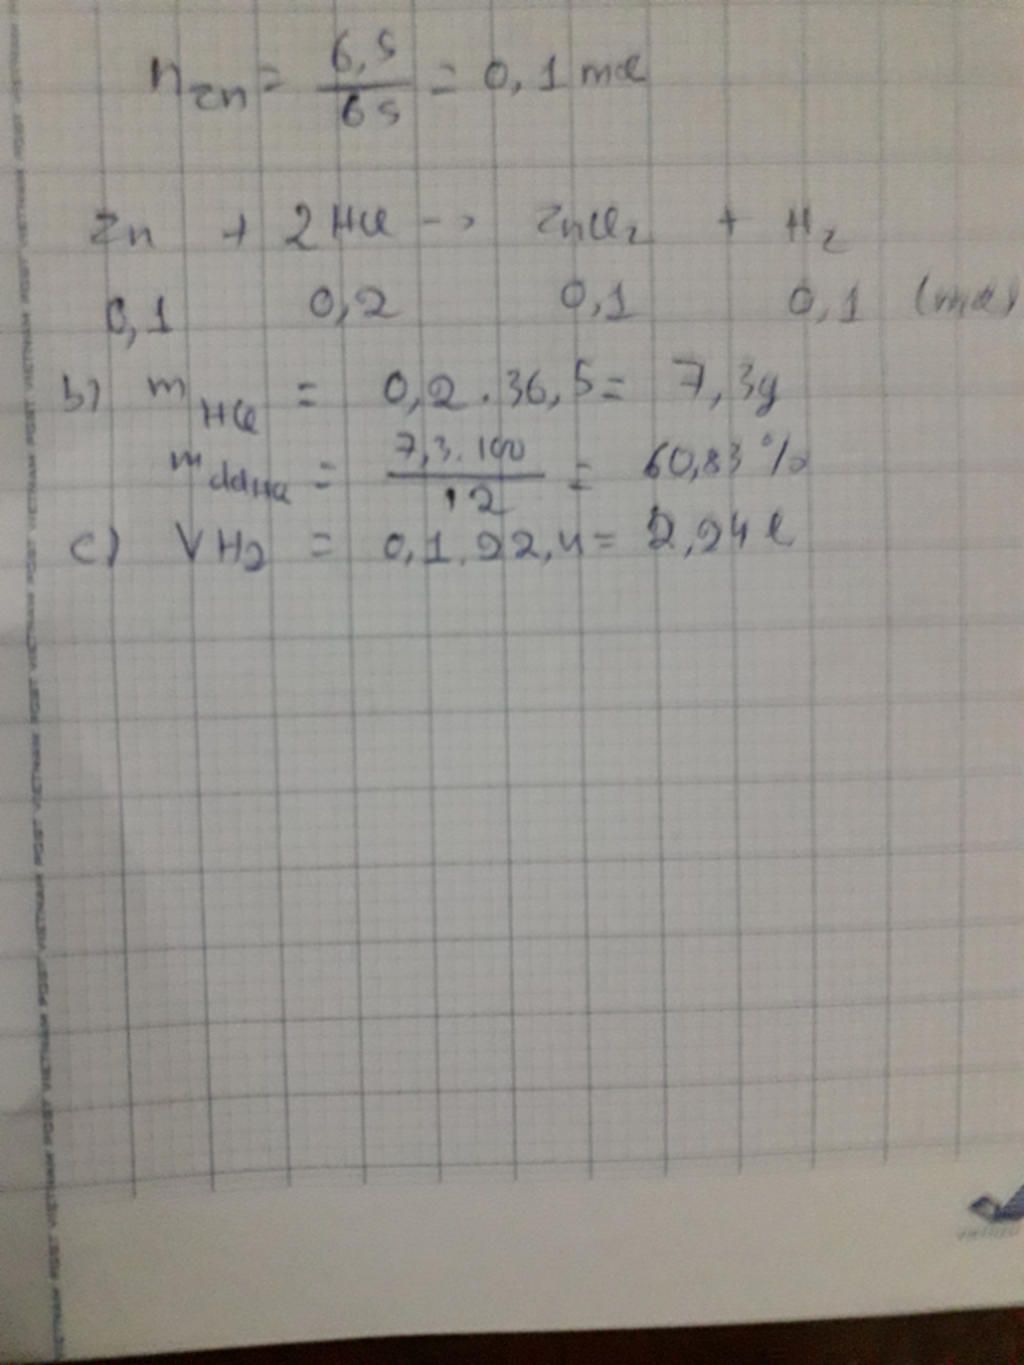 nZn = 6,5/65 = 0,1 mol
Zn + 2HCl --> ZnCl2 + H2
0,1 0,2 0,1 0,1 (mol)
b) mHCl = 0,2 . 36,5 = 7,3g
mddHCl = 7,3.100/12 = 60,83 %
c) VH2 = 0,1.22,4 = 2,24 l
VIETNAM POST VIETNAM POST VIETNAM POST VIETNAM POST VIETNAM POST